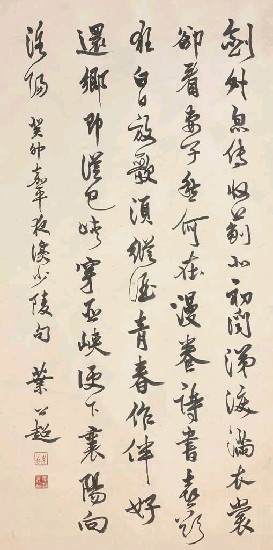 劍外忽傳收薊北初聞涕淚滿衣裳
卻看妻子愁何在漫卷詩書喜欲
狂白日放歌須縱酒青春作伴好
還鄉即從巴峽穿巫峽便下襄陽向
洛陽 癸卯嘉平夜少陵句 葉公超